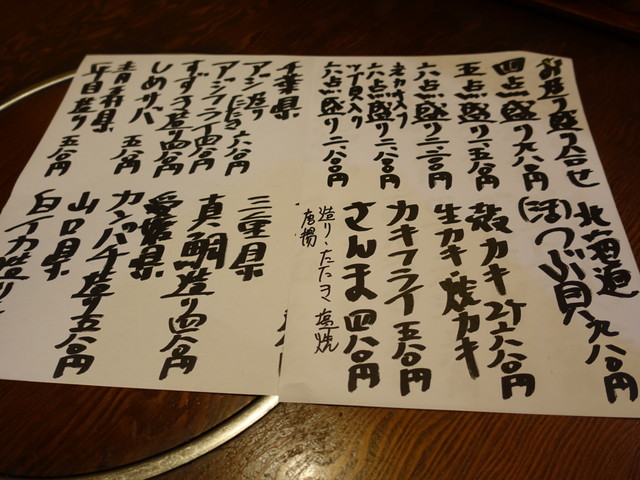 お造り盛り合せ
四点盛り 九八〇円
五点盛り 一、五八〇円
六点盛り 二、二八〇円
生カキ入り
六点盛り 二、八〇円
ツブ貝入り
六点盛り 二、八〇円
千葉県
アジ造り
たたき 六八〇円
アジフライ 四八〇円
すずき造り 四八〇円
しめサバ
五八〇円
青森県
平目造り 五八〇円
北海道
(活)つぶ貝 九八〇円
殻カキ 2ケ 六八〇円
生カキ・焼カキ
カキフライ 五八〇円
さんま 四八〇円
造り、たたき 塩焼
唐揚
三重県
真鯛造り 四八〇円
愛媛県
カンパチ造り 五八〇円
山口県
白イカ造り